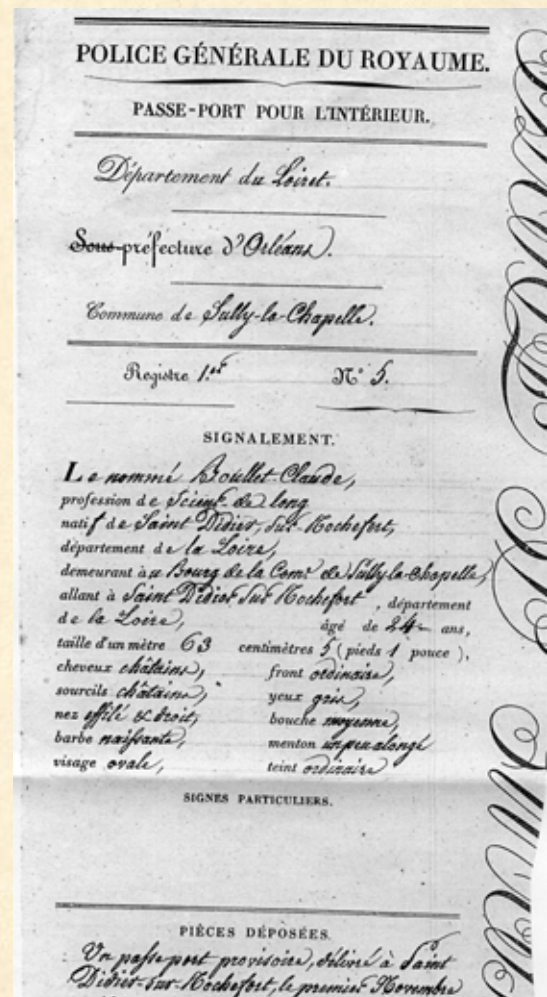 POLICE GÉNÉRALE DU ROYAUME.
PASSE-PORT POUR L'INTÉRIEUR.
Département du Loiret.
Sous-préfecture d'Orléans.
Commune de Sully-la-Chapelle.
Registre 1.er N° 5.
SIGNALEMENT.
Le nommé Boullet Claude,
profession de Scieur de long
natif de Saint Didier, sur Rochefort,
département de la Loire,
demeurant au Bourg de la Com.e de Sully la Chapelle,
allant à Saint Didier Sur Rochefort, département
de la Loire, âgé de 24 ans,
taille d'un mètre 63 centimètres 5 (pieds 1 pouce),
cheveux châtains, front ordinaire,
sourcils châtains, yeux gris,
nez effilé & droit, bouche moyenne,
barbe naissante, menton un peu alongé
visage ovale, teint ordinaire
SIGNES PARTICULIERS.
PIÈCES DÉPOSÉES.
Un passe port provisoire, délivré à Saint
Didier-sur-Rochefort, le premier Novembre